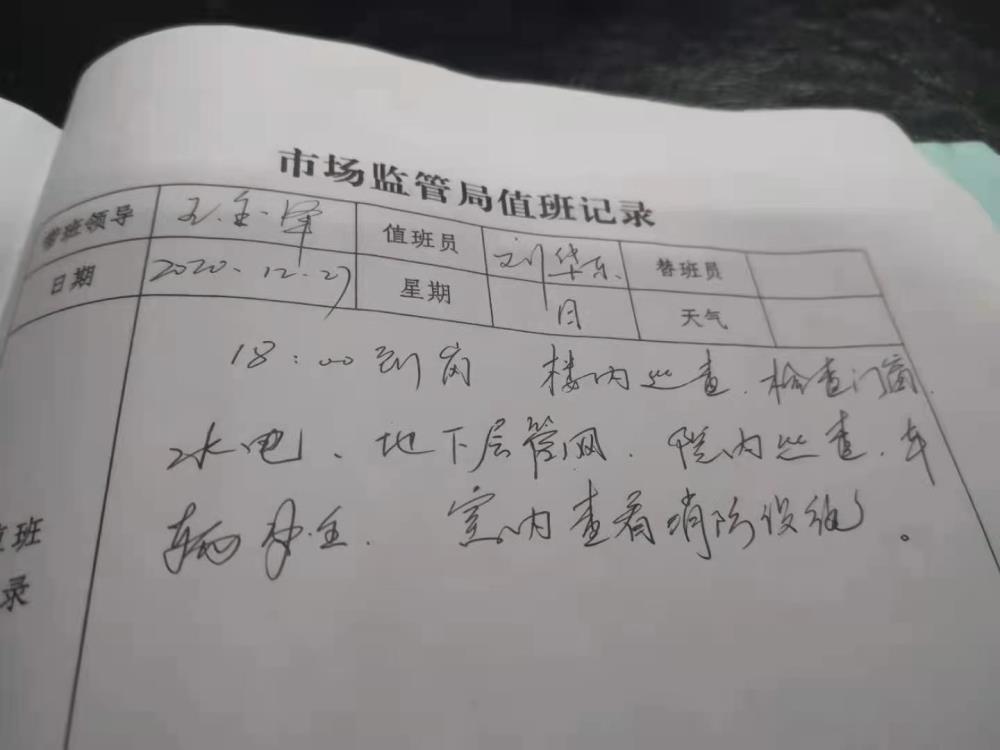 市场监管局值班记录
带班领导 王全泽 值班员 刘华东 替班员
日期 2020.12.27 星期 日 天气
18:00到岗 楼内巡查.检查门窗.
水电、地下层管网.院内巡查.车
辆安全.室内查看消防设施。
值班
记录